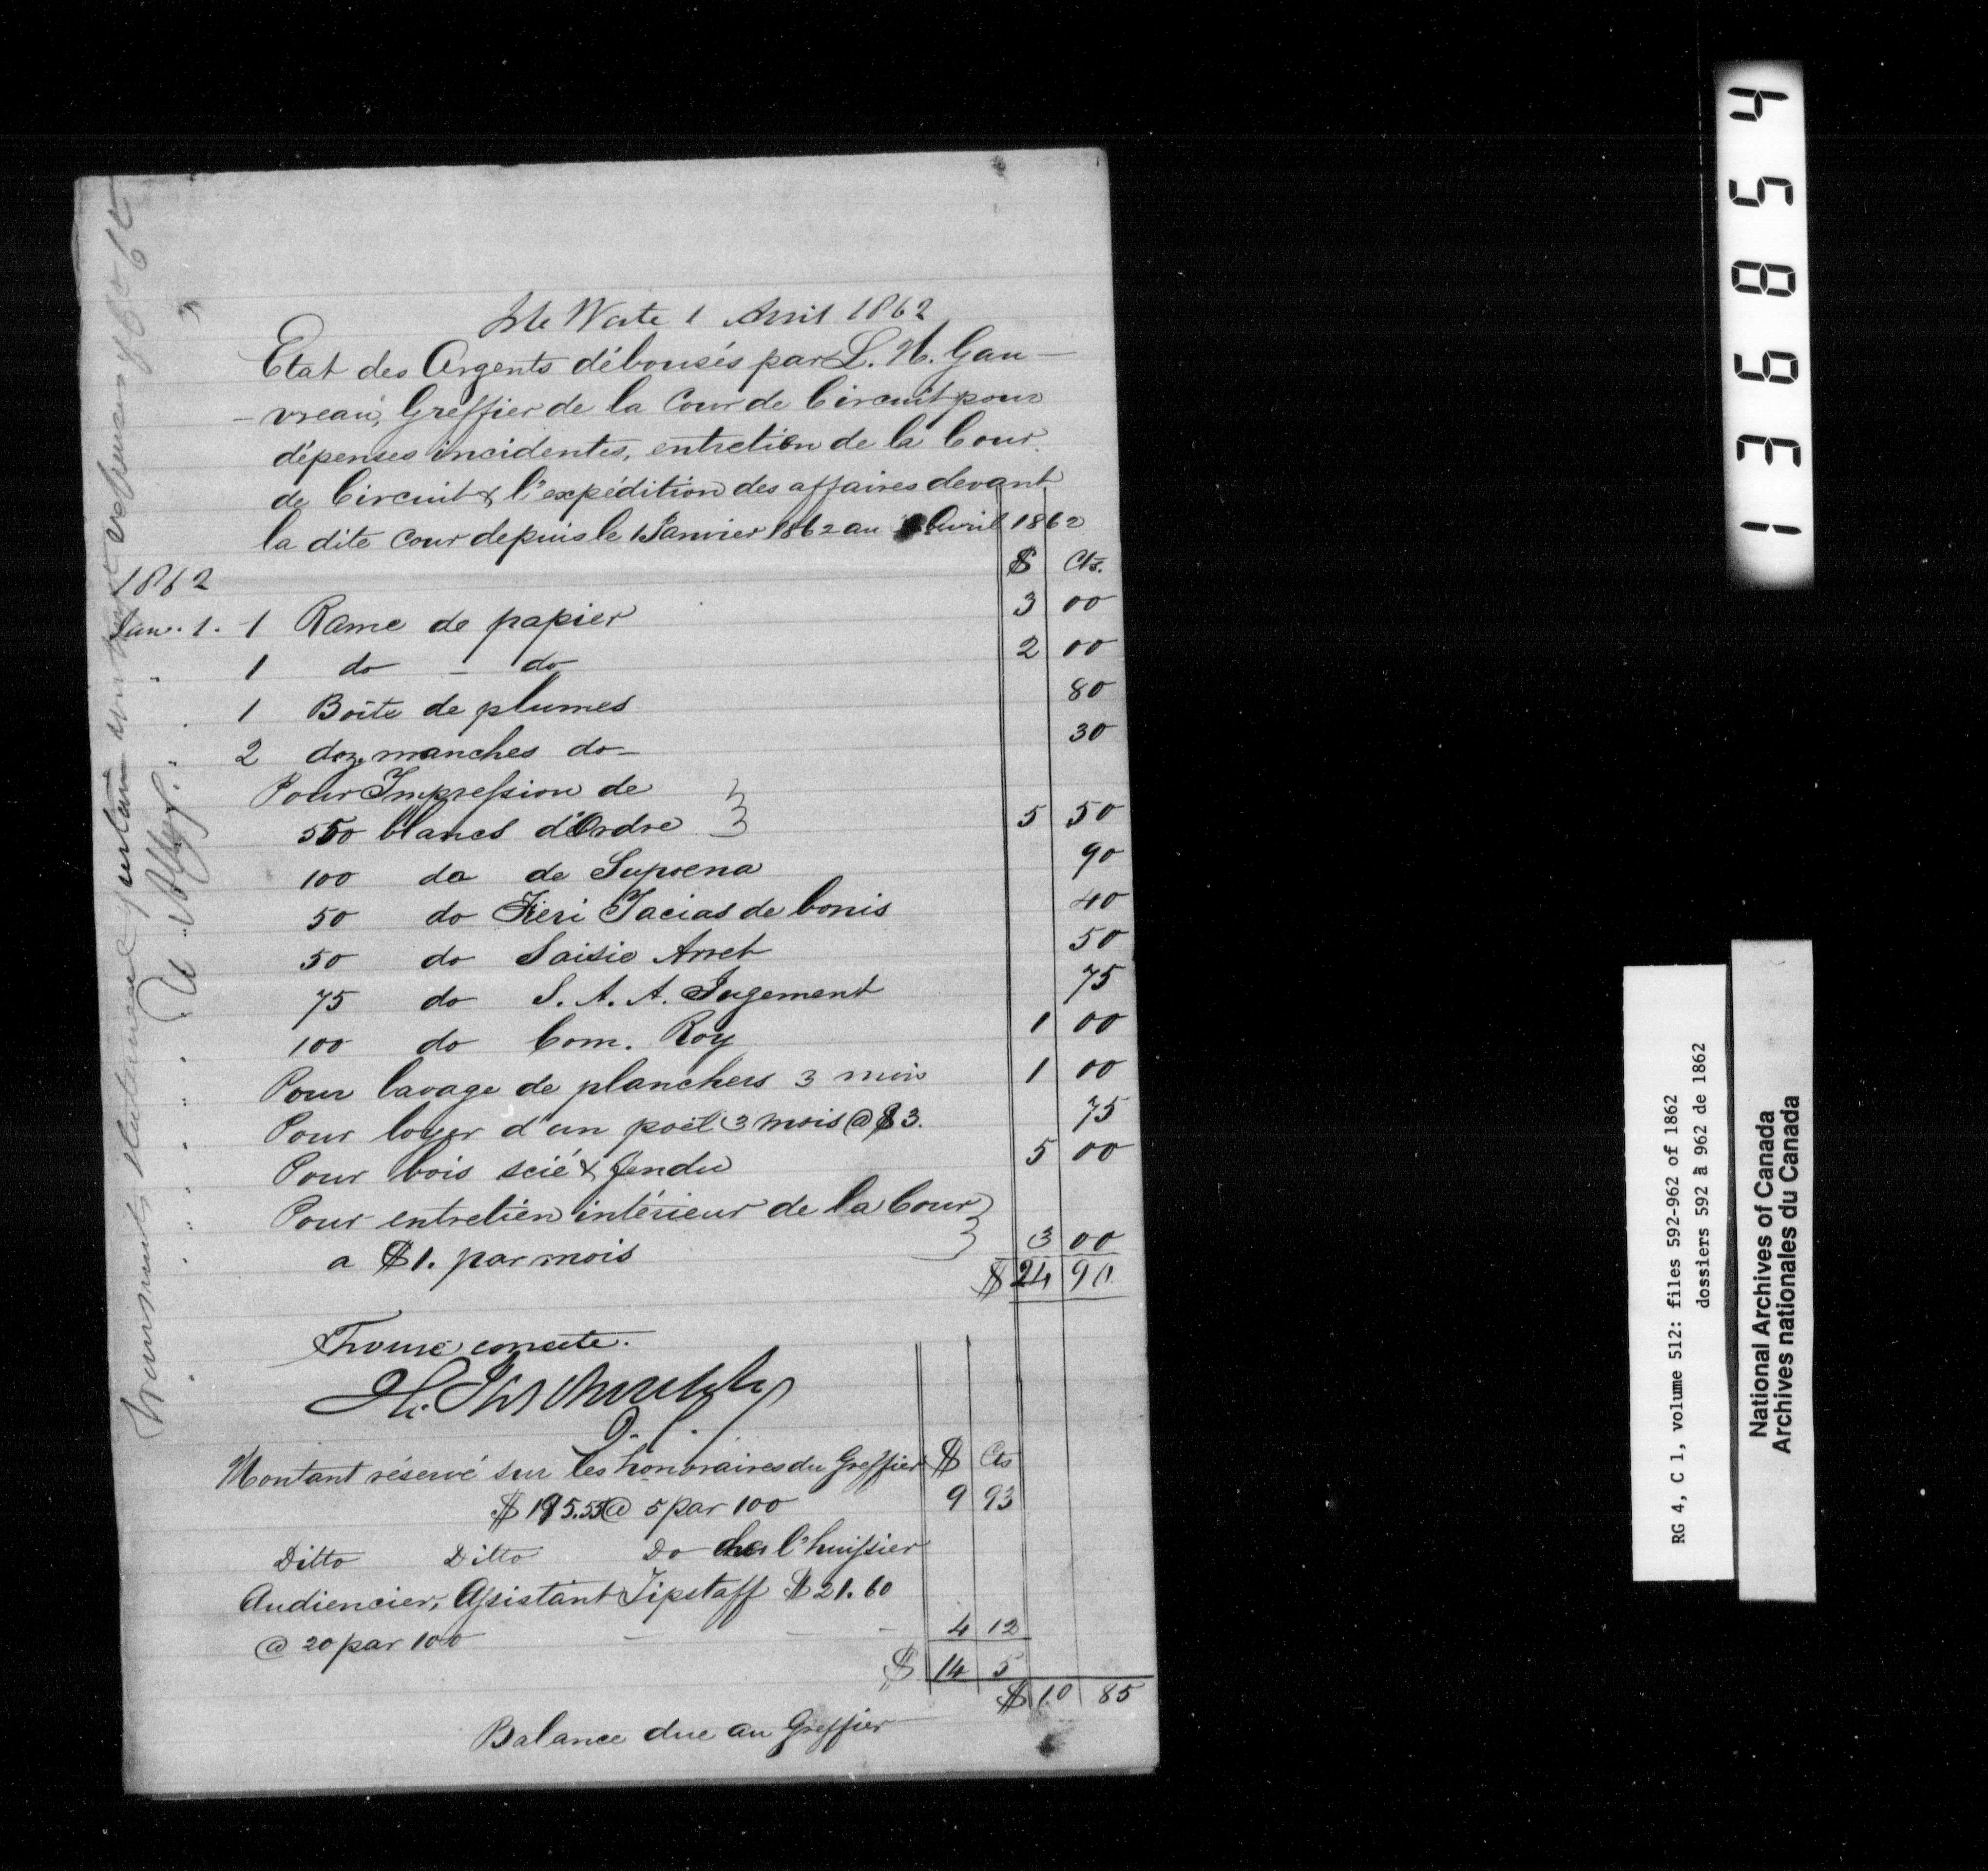 Isle Verte 1 Avril 1862
Etat des Argents débousés par L. N. Gau-
-vreau, Greffier de la Cour de Circuit pour
dépenses incidentes, entretien de la Cour
de Circuit & l'expédition des affaires devant
la dite Cour depuis le 1 Janvier 1862 au Avril 1862
$ Cts.
1862
Janv. 1. 1 Rame de papier 3 00
" 1 do - do 2 00
" 1 Boîte de plumes 80
" 2 doz. manches do- 30
" Pour Impression de
550 blancs d'Ordre 5 50
100 do de Supoena 90
50 do Fieri Facias de bonis 40
50 do Saisie Arret 50
75 do S. A. A. Jugement 75
" 100 do Com. Roy 1 00
" Pour lavage de planchers 3 mois 1 00
" Pour loyer d'un poël 3 mois @ $3. 75
" Pour bois scié & fendu 5 00
" Pour entretien intérieur de la Cour
" a $1. par mois 3 00
$ 24 90
Montant réservé sur les honoraires du Greffier $ Cts
$ 195.55 @ 5 par 100 9 93
Ditto Ditto Do l'huissier
Audiencier, Assistant Tipstaff $ 21.60
@ 20 par 100 - - - 4 12
$ 14 5
$ 10 85
Balance due au Greffier
136854
RG 4, C 1, volume 512: files 592-962 of 1862
dossiers 592 à 962 de 1862
National Archives of Canada
Archives nationales du Canada